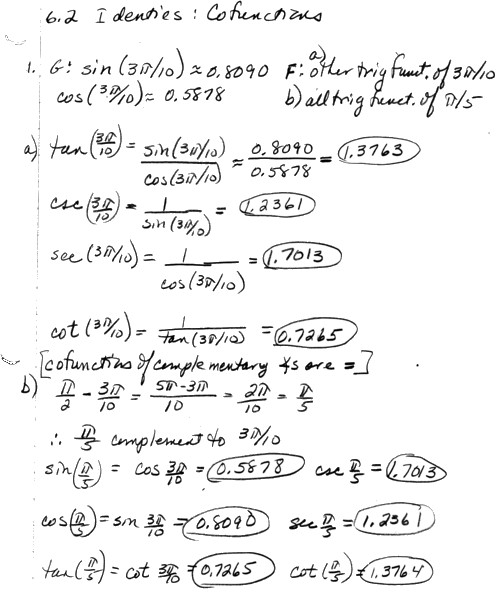 6.2 Identies: Cofunctions
1. G: sin(3π/10) ≈ 0.8090 F: a) other trig funct. of 3π/10
cos(3π/10) ≈ 0.5878 b) all trig funct. of π/5
a) tan(3π/10) = sin(3π/10)/cos(3π/10) ≈ 0.8090/0.5878 = 1.3763
csc(3π/10) = 1/sin(3π/10) = 1.2361
sec(3π/10) = 1/cos(3π/10) = 1.7013
cot(3π/10) = 1/tan(3π/10) = 0.7265
[cofunctions of complementary ∡s are =]
b) π/2 - 3π/10 = 5π-3π/10 = 2π/10 = π/5
∴ π/5 complement to 3π/10
sin(π/5) = cos 3π/10 = 0.5878 csc π/5 = 1.7013
cos(π/5) = sin 3π/10 = 0.8090 sec π/5 = 1.2361
tan(π/5) = cot 3π/10 = 0.7265 cot(π/5) = 1.3764